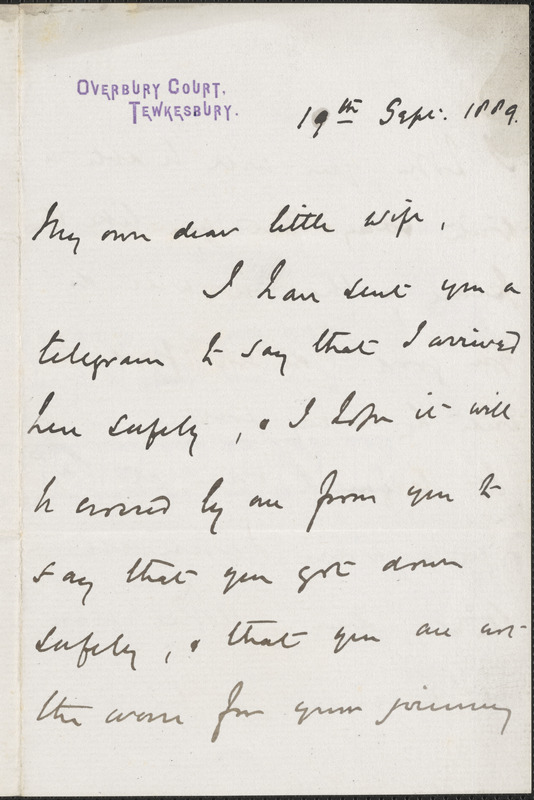 OVERBURY COURT,
TEWKESBURY.
19th Sept. 1889.
My own dear little wife,
I have sent you a
telegram to say that I arrived
here safely, & I hope it will
be crossed by one from you to
say that you got down
safely, & that you are not
the worse for your journey